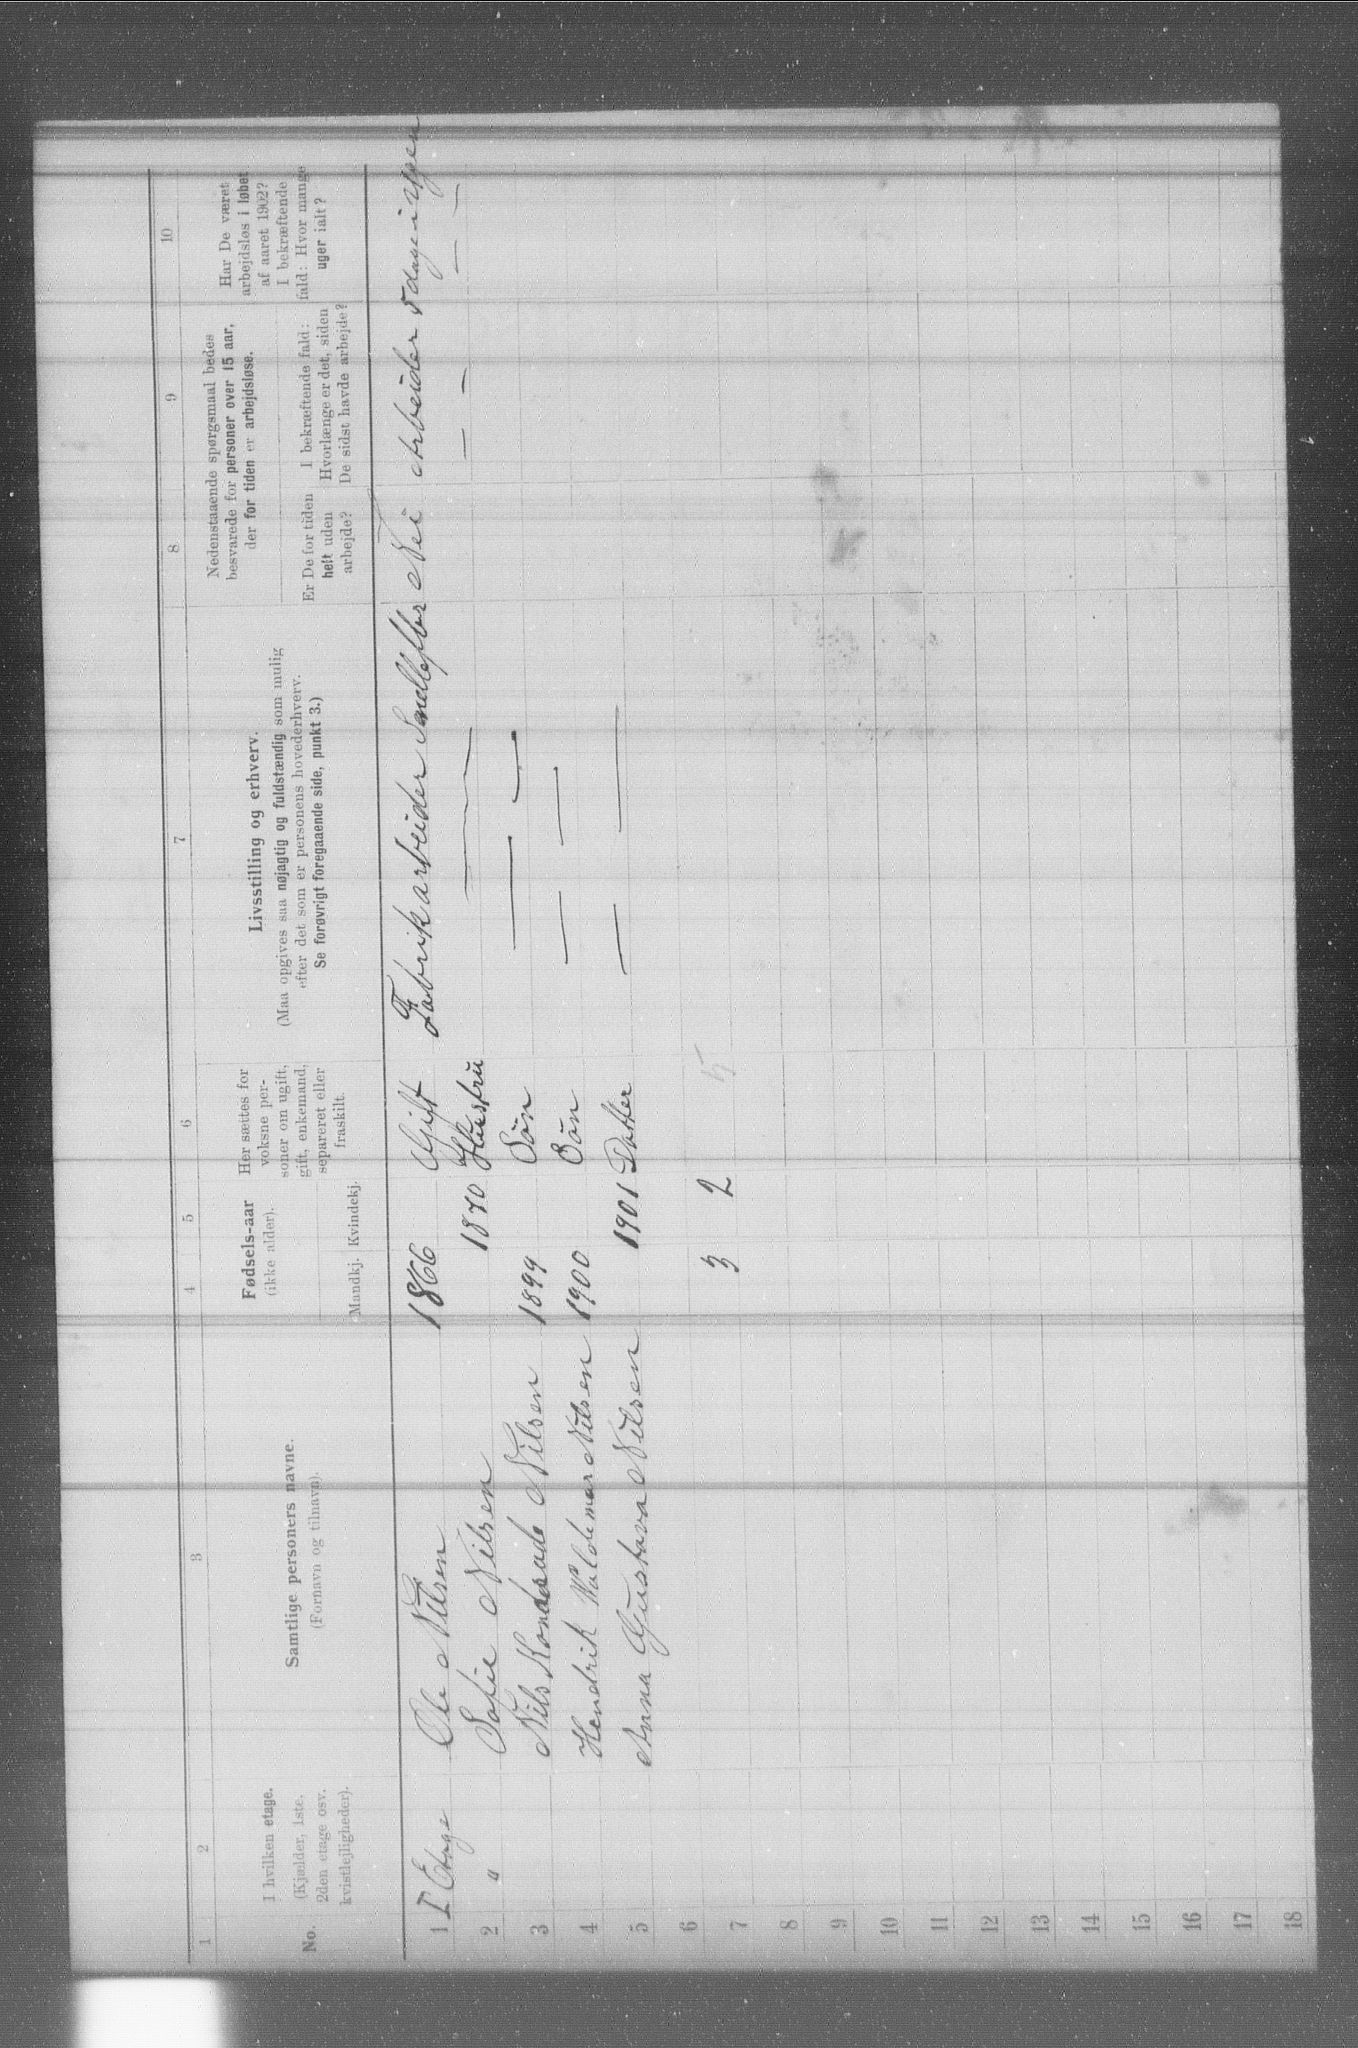 1 2 3 4 5 6 7 8 9 10
No.
I hvilken etage.
(Kjælder, 1ste.
2den etage osv.
kvistlejligheder).
Samtlige personers navne.
(Fornavn og tilnavn).
Fødsels-aar
(ikke alder).
Mandkj. Kvindekj.
Her sættes for
voksne per-
soner om ugift,
gift, enkemand,
separeret eller
fraskilt.
Livsstilling og erhverv.
(Maa opgives saa nøjagtig og fuldstændig som mulig
efter det som er personens hovederhverv.
Se forøvrigt foregaaende side, punkt 3.)
Nedenstaaende spørgsmaal bedes
besvarede for personer over 15 aar,
der for tiden er arbejdsløse.
Er De for tiden
helt uden
arbejde?
I bekræftende fald:
Hvorlænge er det, siden
De sidst havde arbejde?
Har De været
arbejdsløs i løbet
af aaret 1902?
I bekræftende
fald: Hvor mange
uger ialt?
1 I Etage Ole Nilsen 1866 Gift Fabrikarbeider Nei Arbeider 5 dage i Ugen
2 " Sofie Nilsen 1870 Hustru — — — — — — —
3 Nils Nilsen 1899 Sön — —
4 Hendrik Valdemar Nilsen 1900 Sön — —
5 Anna Gustava Nilsen 1901 Datter — —
6
7 3 2 5
8
9
10
11
12
13
14
15
16
17
18